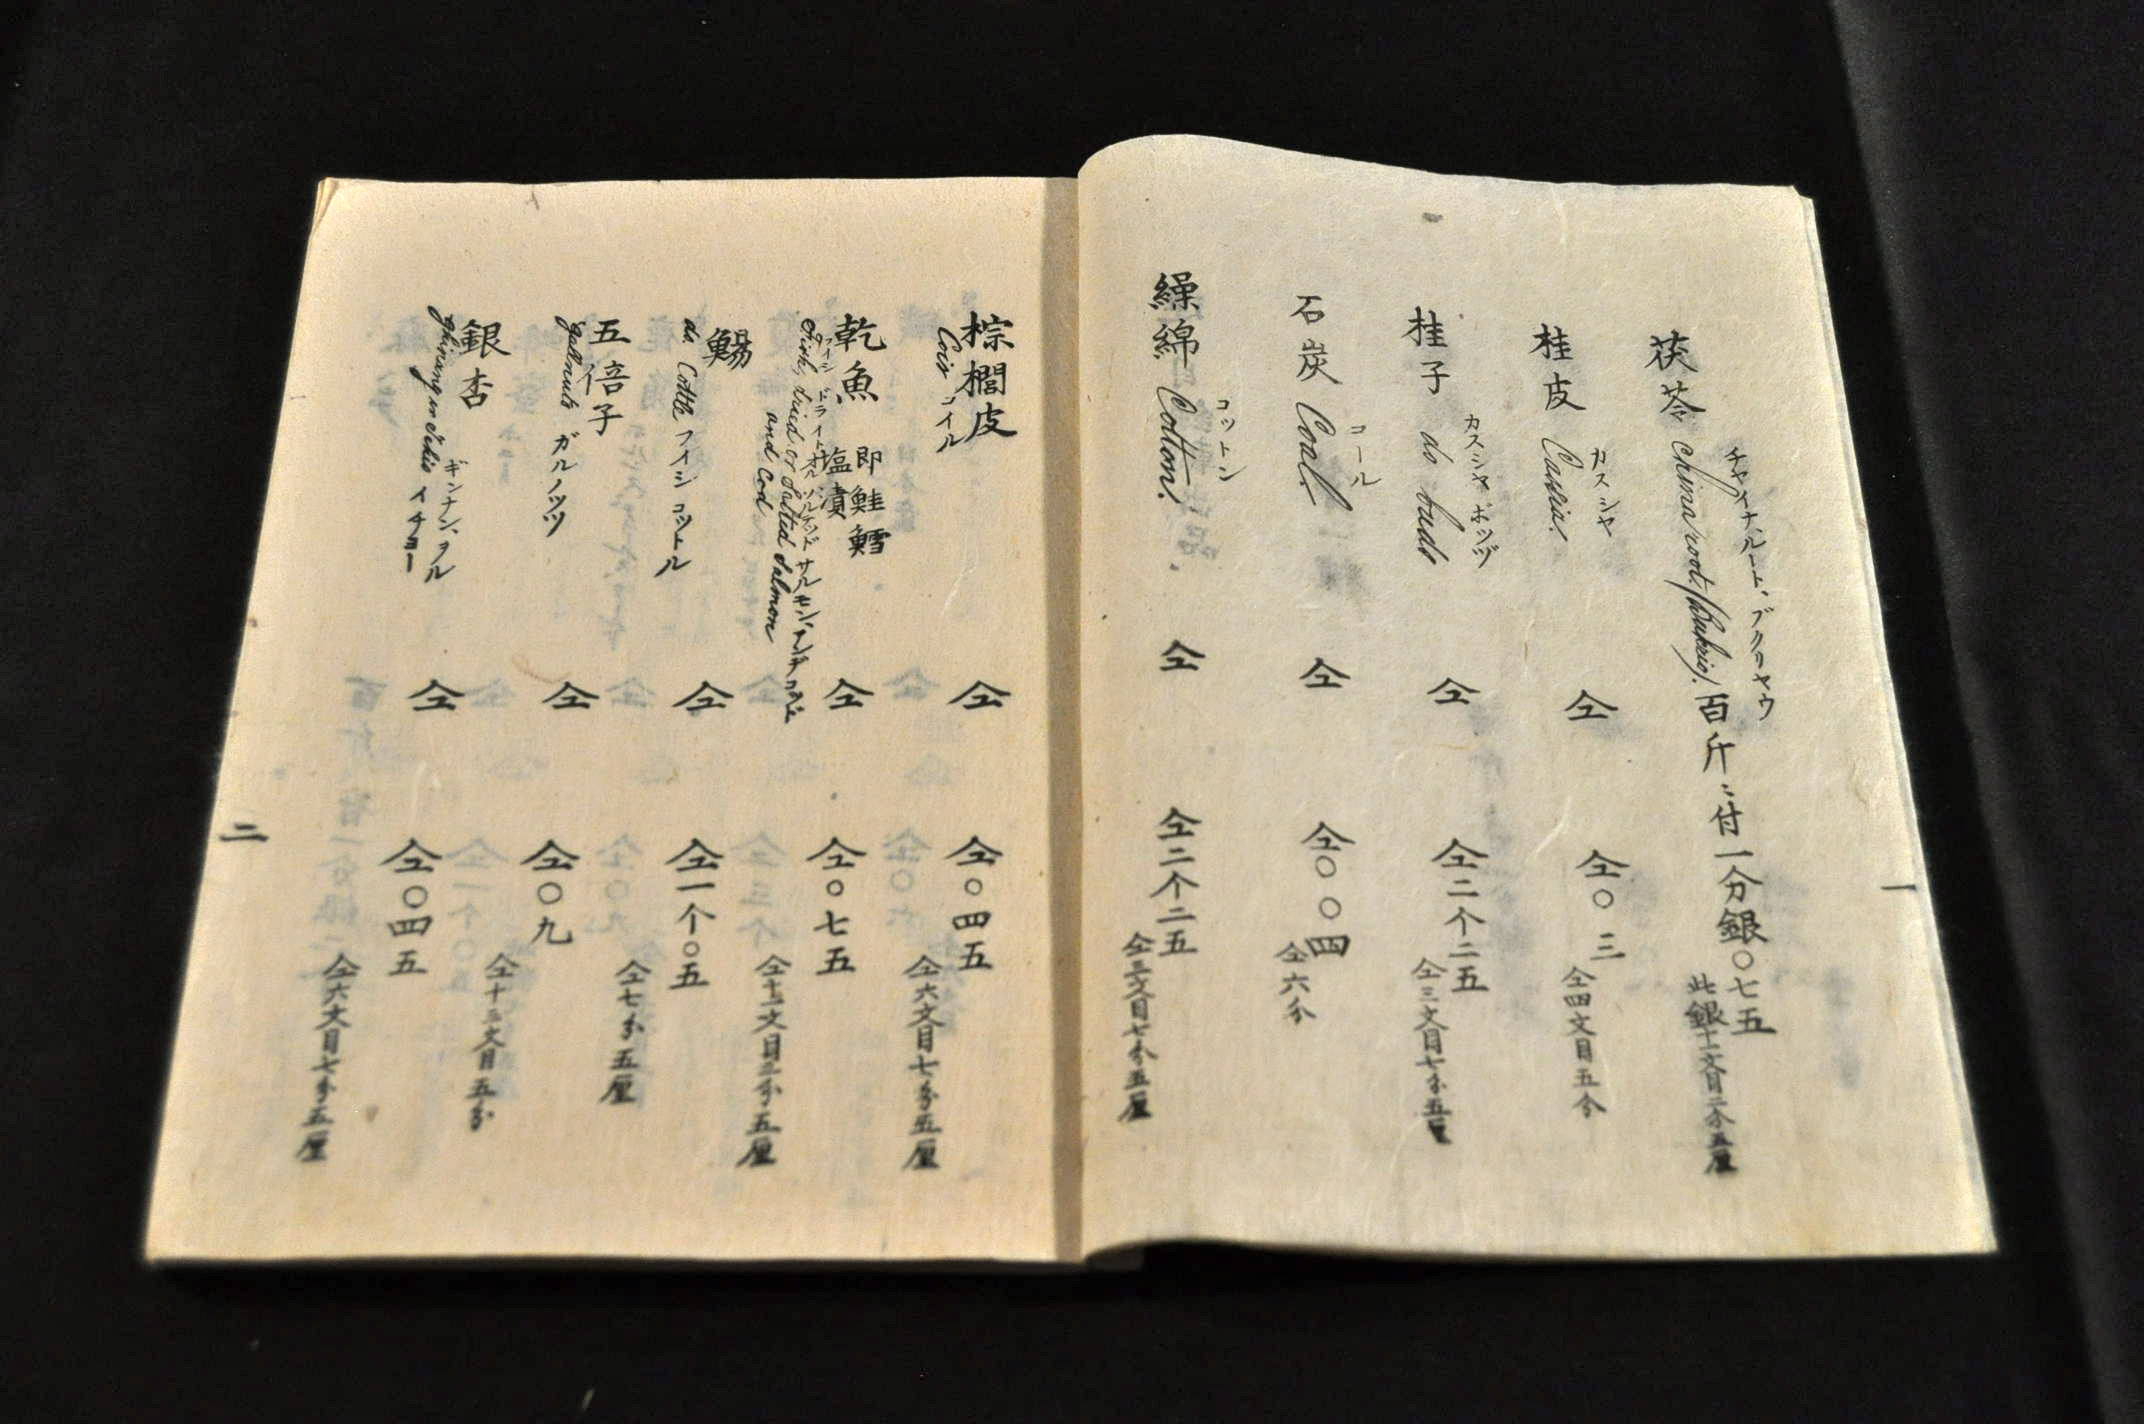 一
チャイナ、ルート、ブクリヤウ
茯苓 China root/bukrio/. 百斤ニ付一分銀〇七五
此銀十一文目二分五厘
カスシヤ
桂皮 Cassia. 仝 仝〇三
仝四文目五分
カスシヤ ボッヅ
桂子 do buds 仝 仝二个二五
仝三文目七分五厘
コール
石炭 Coal. 仝 仝〇〇四
仝六分
コットン
繰綿 Cotton. 仝 仝二个二五
仝三文目七分五厘
棕櫚皮 仝 仝〇四五
Coir コイル
仝六文目七分五厘
乾魚 即鮭鱈 塩漬 仝 仝〇七五
フイシ ドライト オル ソルテッド サルモン、アンド コッド
Fish, dried or Salted Salmon
and Cod
仝十一文目二分五厘
鯣 仝 仝一个〇五
do. Cottle フイシ コットル
仝七分五厘
五倍子 仝 仝〇九
Gallnuts ガルノッツ
仝十三文目五分
銀杏 仝 仝〇四五
ギンナン、ヲル イチヨー
仝六文目七分五厘
二